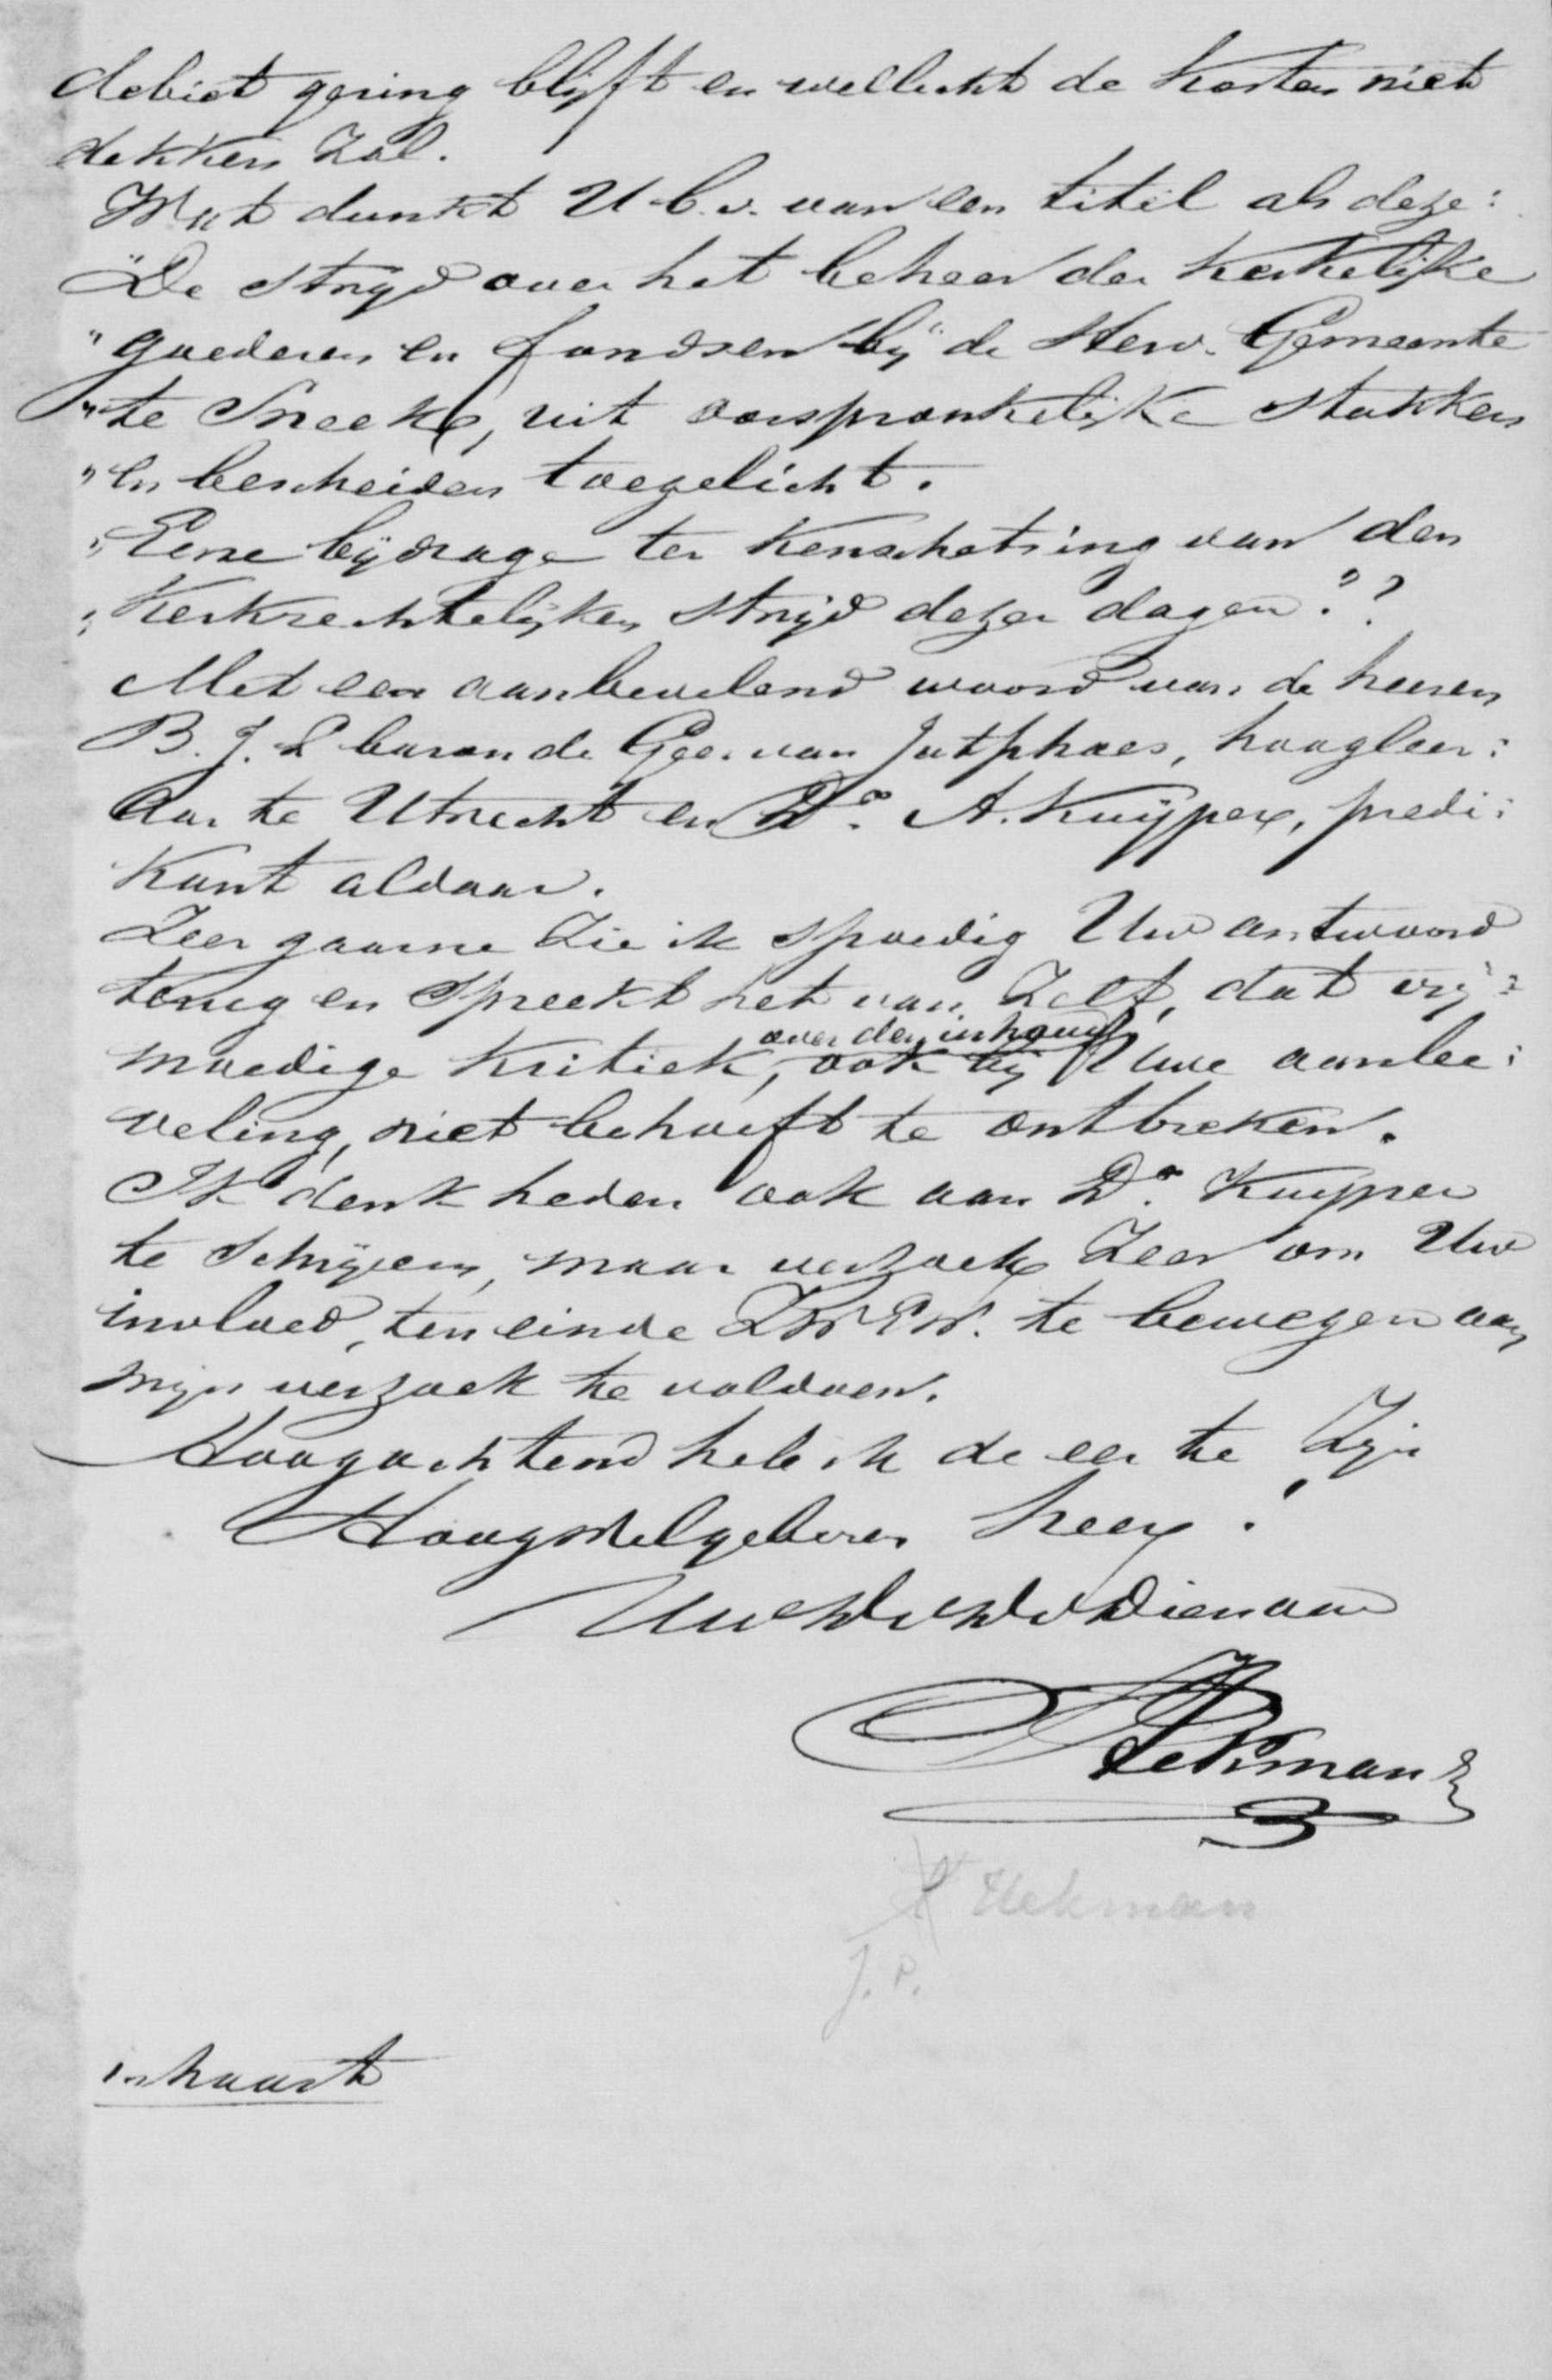 debiet gering blijft en wellicht de kosten niet
dekken zal.
Wat dunkt U b.v. van een titel als deze:
"De strijd over het beheer der kerkelijke
"goederen en fondsen bij de Herv. Gemeente
"te Sneek, uit oorspronkelijke stukken
"en bescheiden toegelicht.
"Eene bijdrage ter kenschetsing van den
"kerkrechtelijken strijd dezer dagen"?
Met een aanbevelend woord van de heeren
B. J. L baron de Geer van Jutphaes, hoogleer:
aar te Utrecht en Dr. A. Kuijper, predi:
kant aldaar.
Zeer gaarne zie ik spoedig Uw antwoord
terug en spreekt het van zelf, dat vrij:
over den inhoud
moedige kritiek, ook bij Uwe aanbe:
veling, niet behoeft te ontbreken.
Ik denk heden ook aan Dr. Kuijper
te schrijven, maar verzoek zeer om Uw
invloed, ten einde ZWEW. te bewegen aan
mijn verzoek te voldoen.
Hoogachtend heb ik de eer te zijn
Hoogwelgeboren heer!
Uw dienaar
Hekman
Hekman
J. P.
in haast